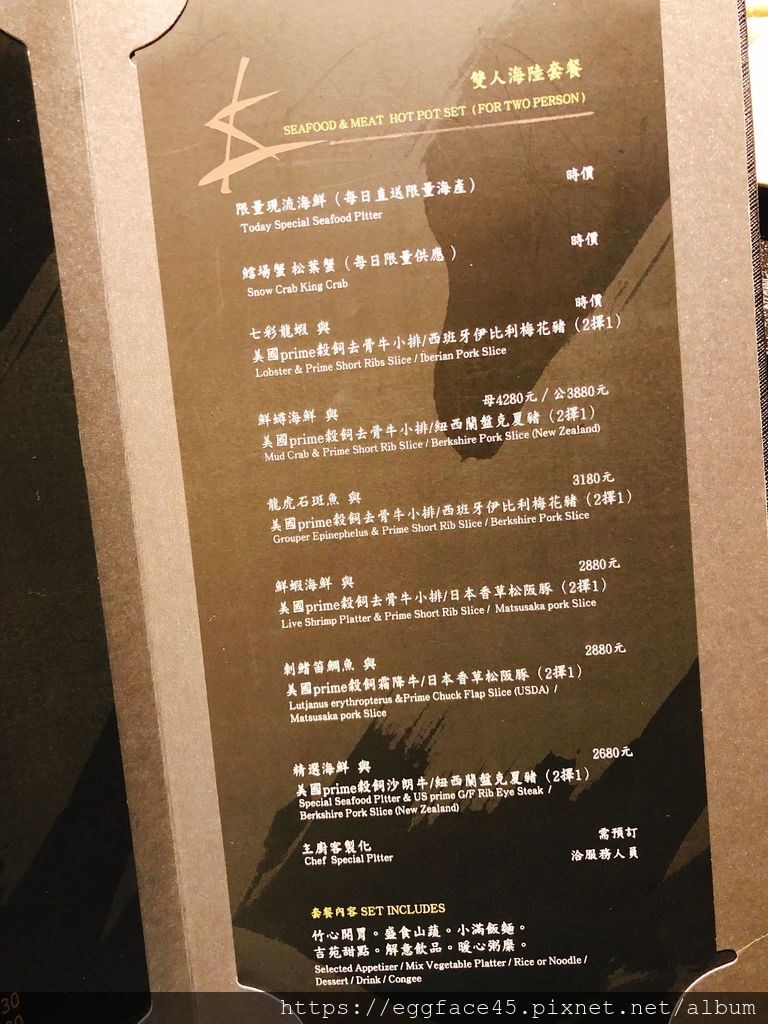 雙人海陸套餐
SEAFOOD & MEAT HOT POT SET (FOR TWO PERSON)
限量現流海鮮（每日直送限量海產） 時價
Today Special Seafood Pltter
鱈場蟹 松葉蟹（每日限量供應） 時價
Snow Crab King Crab
七彩龍蝦 與 時價
美國prime穀飼去骨牛小排/西班牙伊比利梅花豬（2擇1）
Lobster & Prime Short Ribs Slice / Iberian Pork Slice
鮮蟳海鮮 與 母4280元 / 公3880元
美國prime穀飼去骨牛小排/紐西蘭盤克夏豬（2擇1）
Mud Crab & Prime Short Rib Slice / Berkshire Pork Slice (New Zealand)
龍虎石斑魚 與 3180元
美國prime穀飼去骨牛小排/西班牙伊比利梅花豬（2擇1）
Grouper Epinephelus & Prime Short Rib Slice / Berkshire Pork Slice
鮮蝦海鮮 與 2880元
美國prime穀飼去骨牛小排/日本香草松阪豚（2擇1）
Live Shrimp Platter & Prime Short Rib Slice / Matsusaka pork Slice
刺鰭笛鯛魚 與 2880元
美國prime穀飼霜降牛/日本香草松阪豚（2擇1）
Lutjanus erythropterus &Prime Chuck Flap Slice (USDA) /
Matsusaka pork Slice
精選海鮮 與 2680元
美國prime穀飼沙朗牛/紐西蘭盤克夏豬（2擇1）
Special Seafood Pltter & US prime G/F Rib Eye Steak /
Berkshire Pork Slice (New Zealand)
主廚客製化 需預訂
Chef Special Pltter 洽服務人員
套餐內容 SET INCLUDES
竹心開胃。盛食山蔬。小滿飯麵。
吉苑甜點。解意飲品。暖心粥糜。
Selected Appetizer / Mix Vegetable Platter / Rice or Noodle /
Dessert / Drink / Congee
30
https://eggface45.pixnet.net/album